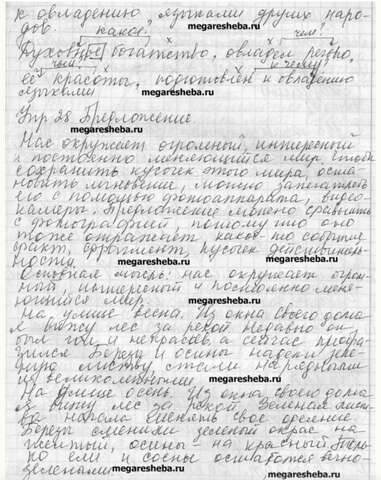 к овладению языками других наро-
дов. какие? megaresheba.ru чем?
Духовные богатства, овладел речью,
чьи? megaresheba.ru к чему?
её красоты, подготовлен к овладению
языками
megaresheba.ru
Упр 28 Предложение.
Нас окружает огромный, интересный
и постоянно меняющийся мир. Чтобы
сохранить кусочек этого мира, оста-
новить мгновение, можно запечатлеть
его с помощью фотоаппарата, видео-
камеры. Предложение можно сравнить
megaresheba.ru
с фотографией, потому что оно
тоже отражает какое-то событие
факт, фрагмент, кусочек действитель-
ности. megaresheba.ru
Основная мысль: нас окружает огром-
ный, интересный и постоянно меня-
ющийся мир. megaresheba.ru
На улице весна. Из окна своего дома
я вижу лес за рекой. Недавно он
был гол и некрасив, а сейчас преобра-
зился. Березы и осины надели зеле-
ную листву, стали нарядными
и великолепными. megaresheba.ru
На улице осень. Из окна своего дома
я вижу лес за рекой. Зеленая лист-
ва начала менять свое одеяние.
Березы сменили зеленый окрас на
желтый, осины - на красный. Толь-
ко ели и сосны остаются вечно-
зелеными megaresheba.ru